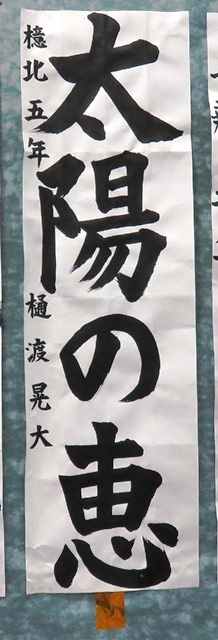 太陽の恵
檍北五年 樋渡晃大